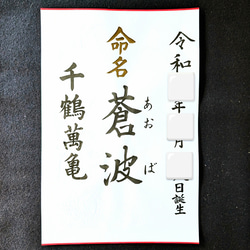 令和 年 月 日誕生
命名
蒼波
あお ば
千鶴萬亀